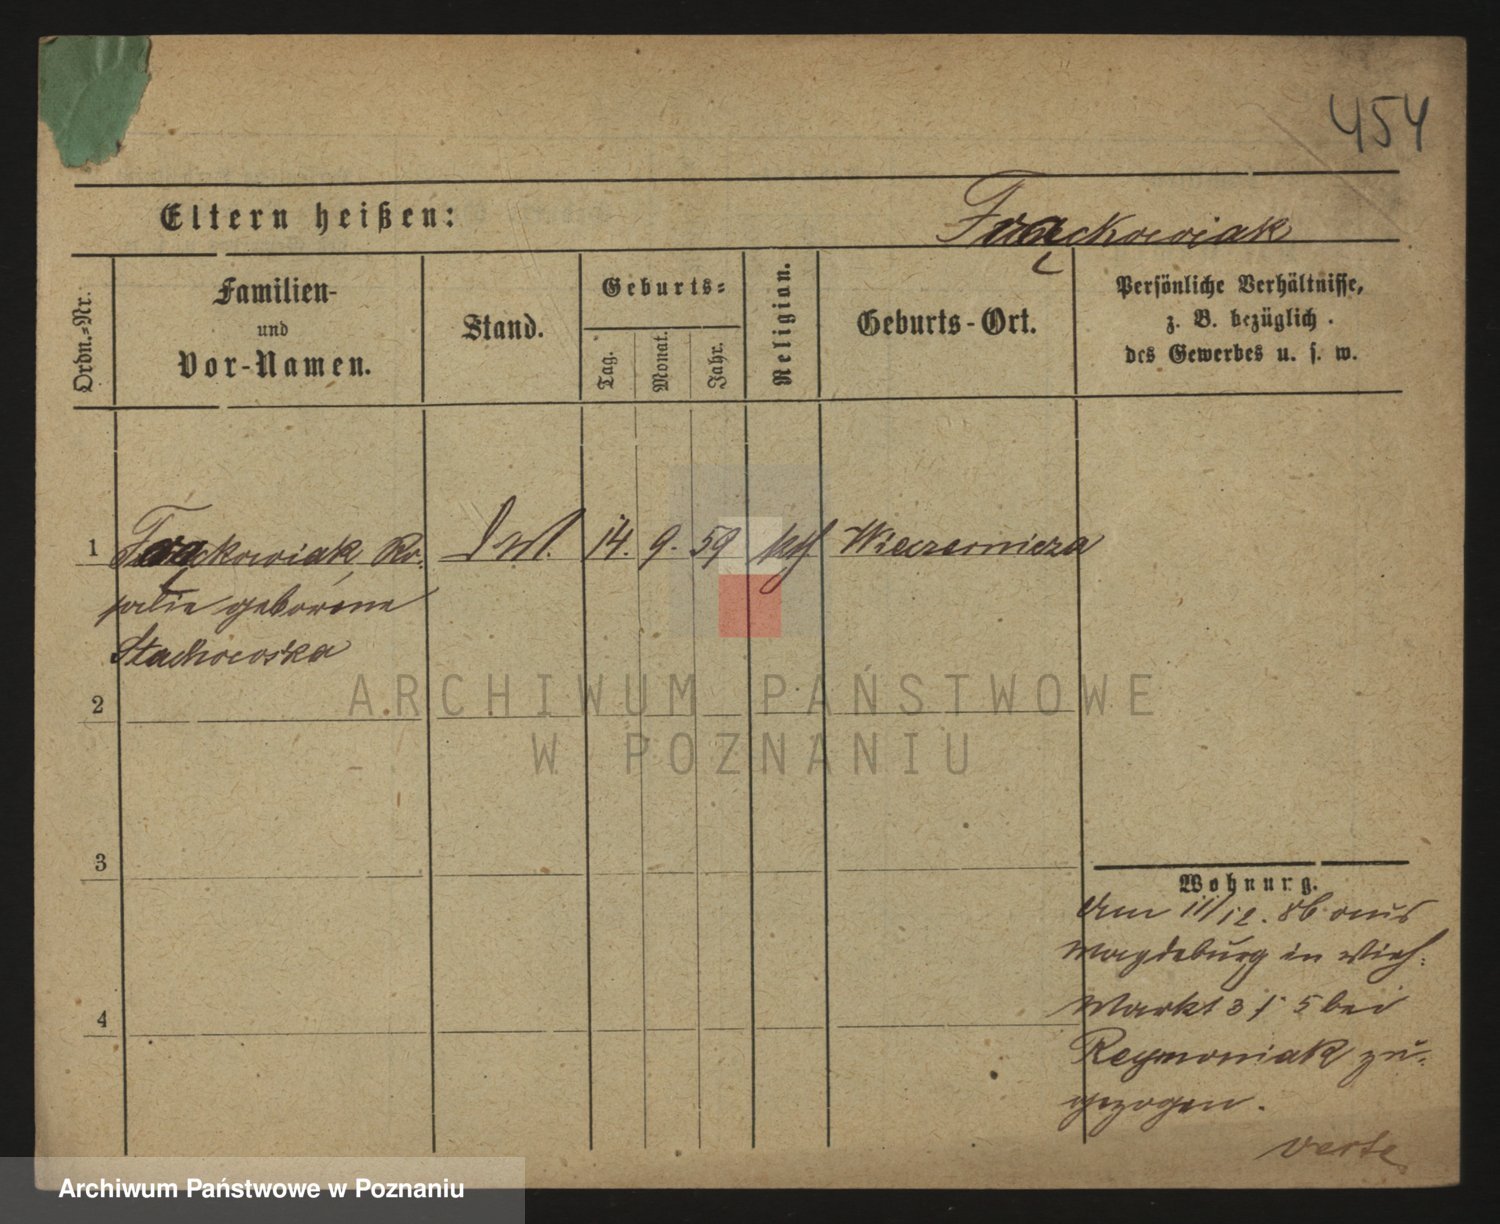 454
Eltern heißen:
Frąckowiak
Ordn.-Nr.
Familien-
und
Vor-Namen.
Stand.
Geburts-
Tag.
Monat.
Jahr.
Religion.
Geburts-Ort.
Persönliche Verhältnisse,
z. B. bezüglich
des Gewerbes u. s. w.
1 Frąckowiak Ro- 14. 9. 59 kth Wieczernicza
salie geborene
Stachowska
2
3
4
Wohnung.
Am 11/12. 86 aus
Magdeburg in Vieh-
Markt 3/5 bei
Reymoniak zu-
gezogen.
verte
ARCHIWUM PAŃSTWOWE
W POZNANIU
Archiwum Państwowe w Poznaniu